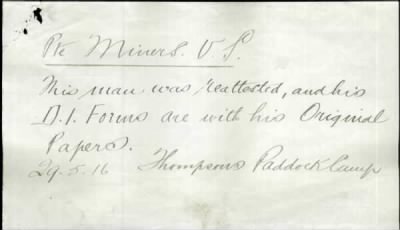 Pte Miners. V. S.
This man was reattested, and his
D.I. Forms are with his Original
Papers.
29.5.16 Thompsons Paddock Camp